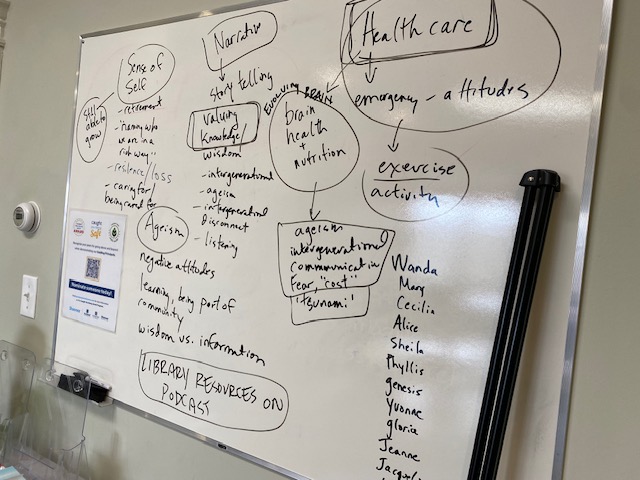 Sense of
Self
still
able to
grow
- retirement
- framing who
we are in a
rich way
- resilence/loss
- caring for/
being cared for
Ageism
negative attitudes
learning, being part of
community
wisdom vs. information
LIBRARY RESOURCES ON
PODCAST
Narrative
story telling
valuing
knowledge/
wisdom
- intergenerational
- ageism
- intergenerational
disconnect
- listening
EVOLVING BRAIN
brain
health
+
nutrition
ageism
intergenerational
communication
Fear, "cost"
'tsunami'
Health care
emergency - attitudes
exercise
activity
Wanda
Mary
Cecilia
Alice
Sheila
Phyllis
genesis
Yvonne
gloria
Jeanne